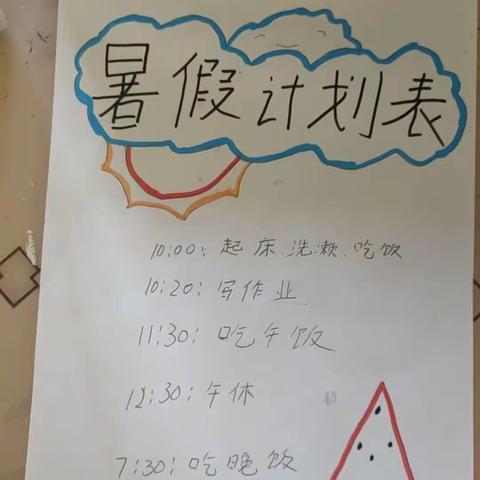 暑假计划表
10:00: 起床.洗漱.吃饭
10:20: 写作业
11:30: 吃午饭
12:30: 午休
7:30: 吃晚饭